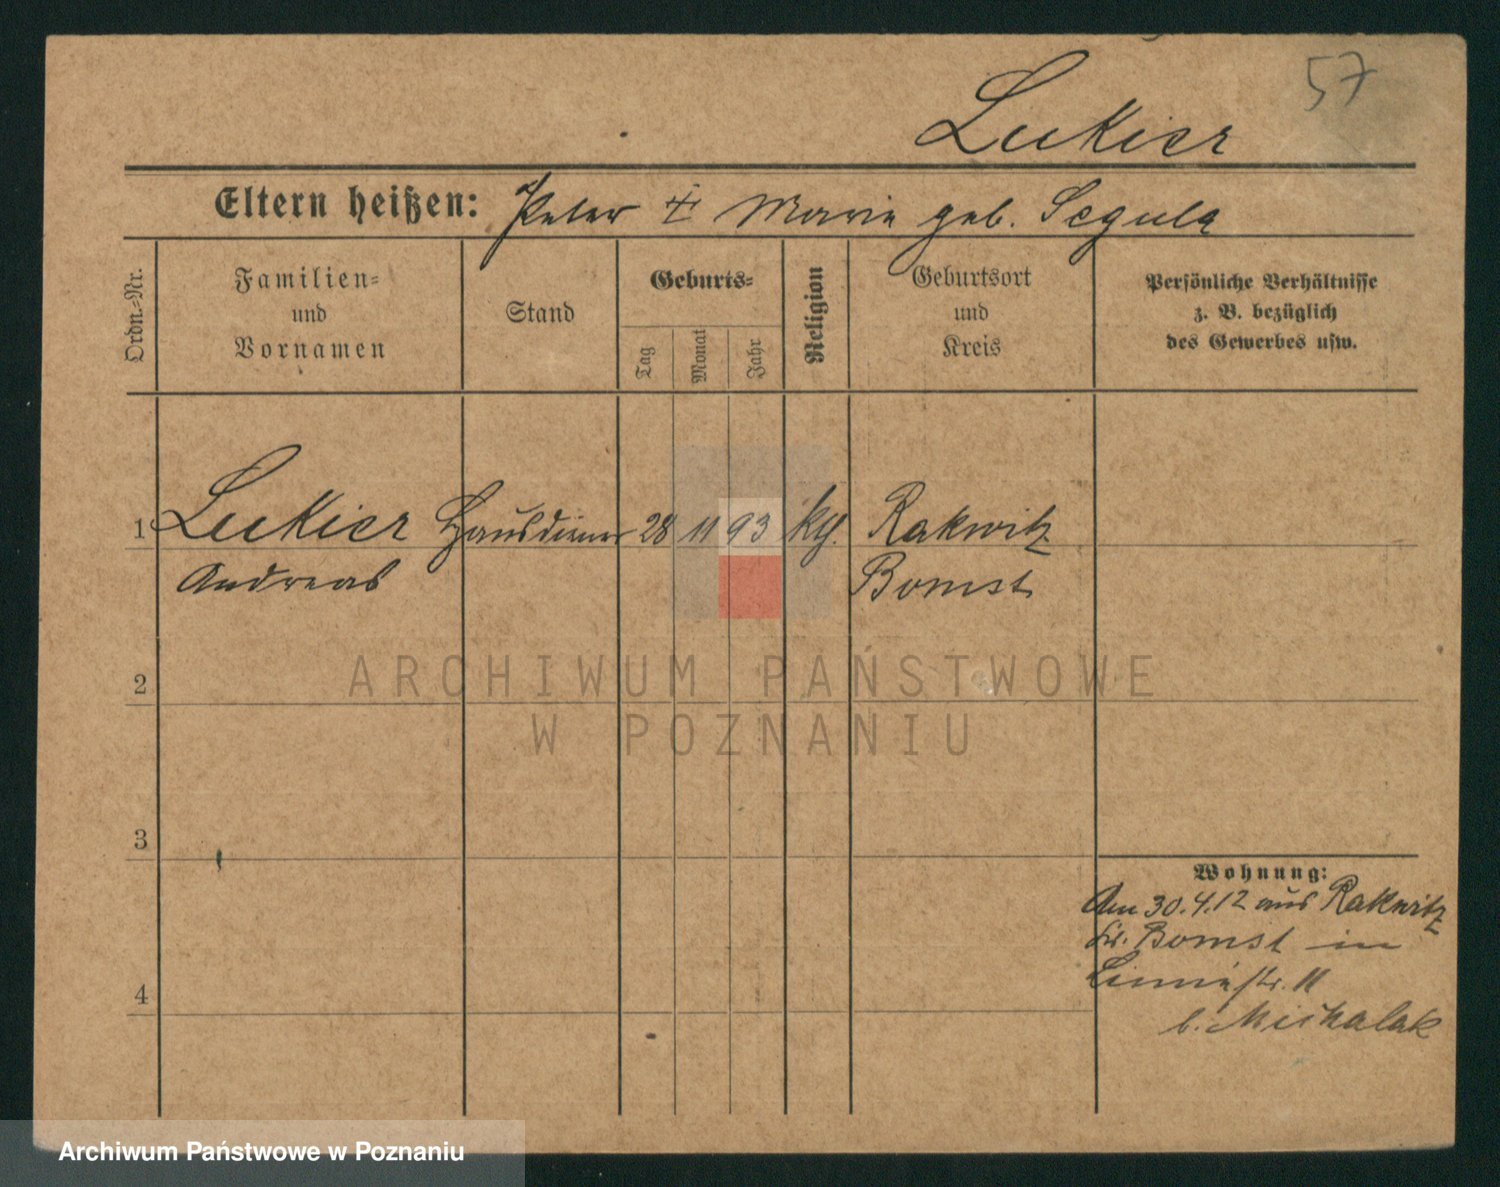 57
Lukier
Eltern heißen: Peter ‡ Marie geb. Segula
Ordn.-Nr.
Familien-
und
Vornamen
Stand
Geburts-
Tag
Monat
Jahr
Religion
Geburtsort
und
Kreis
Persönliche Verhältnisse
z. B. bezüglich
des Gewerbes usw.
1 Lukier Hausdiener 28 11 93 kth. Rakwitz
Andreas Bomst
ARCHIWUM PAŃSTWOWE
2
W POZNANIU
3
Wohnung:
Am 30.4.12 aus Rakwitz
Kr. Bomst in
str. 11
4
b. Michalak
Archiwum Państwowe w Poznaniu